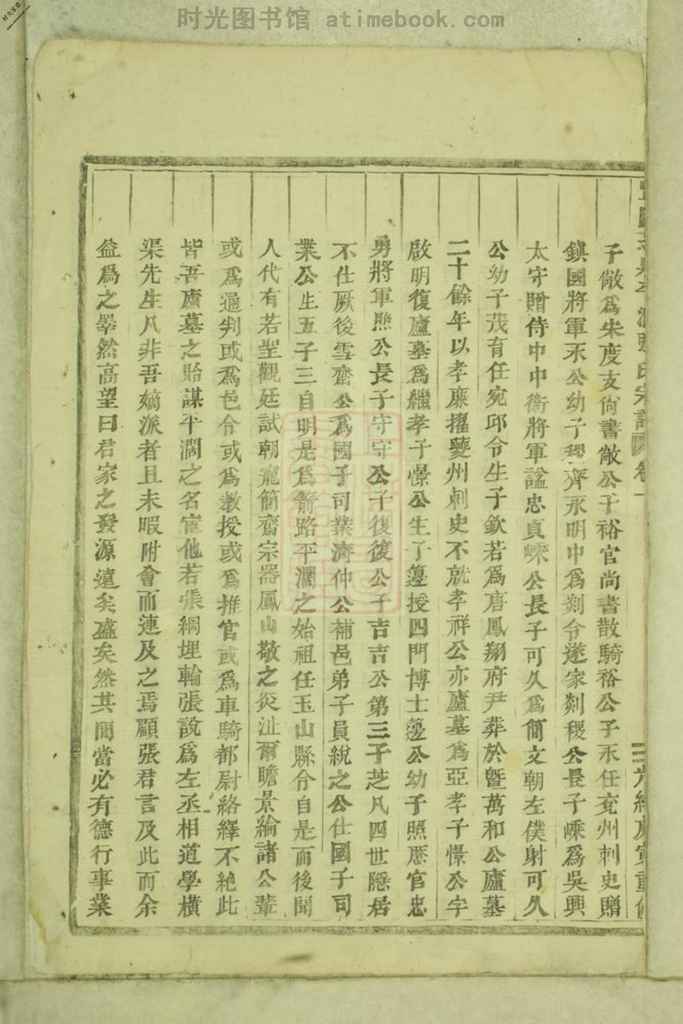 时光图书馆 atimebook.com
子敞爲宋度支尙書敞公子裕官尚書散騎裕公子永任兗州刺史贈
鎮國將軍永公幼子稷齊永明中爲剡令遂家剡稷公長子嵊爲吳興
太守贈侍中中衛將軍諡忠貞嵊公長子可久爲簡文朝左僕射可久
公幼子茂有任宛邱令生子欽若爲唐鳳翔府尹葬於暨萬和公廬墓
二十餘年以孝廉擢夔州刺史不就孝祥公亦廬墓爲亞孝子憬公字
啟明復廬墓爲繼孝子憬公生子藻授四門博士藻公幼子照歷官忠
勇將軍照公長子守守公子復復公子吉吉公第三子芝凡四世隱居
不仕厥後雪齋公爲國子司業濟仲公補邑弟子員統之公仕國子司
業公生五子三自明是爲箭路平濶之始祖任玉山縣令自是而後聞
人代有若聖觀廷試朝寵簡齋宗器鳳山敬之炎沚爾瞻景綸諸公輩
或爲通判或爲邑令或爲教授或爲推官或爲車騎都尉絡繹不絕此
皆吾廬墓之貽謀平濶之名宦他若張綱埋輪張說爲左丞相道學橫
渠先生凡非吾嫡派者且未暇附會而連及之焉顧張君言及此而余
益爲之睪然高望曰君家之發源遠矣盛矣然其間當必有德行事業